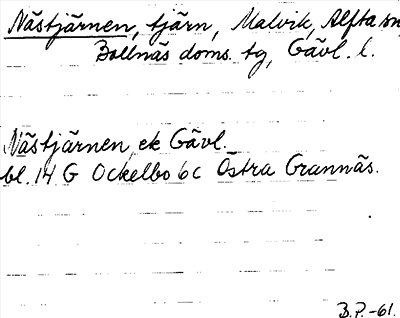 Nästjärnen, tjärn, Malvik, Alfta sn,
Bollnäs doms. tg, Gävl. l.
Nästjärnen ek Gävl.
bl. 14 G Ockelbo 6c Östra Grannäs.
B.P.-61.